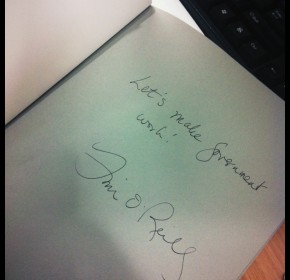 Let's make Government
work!
Tim O'Reilly